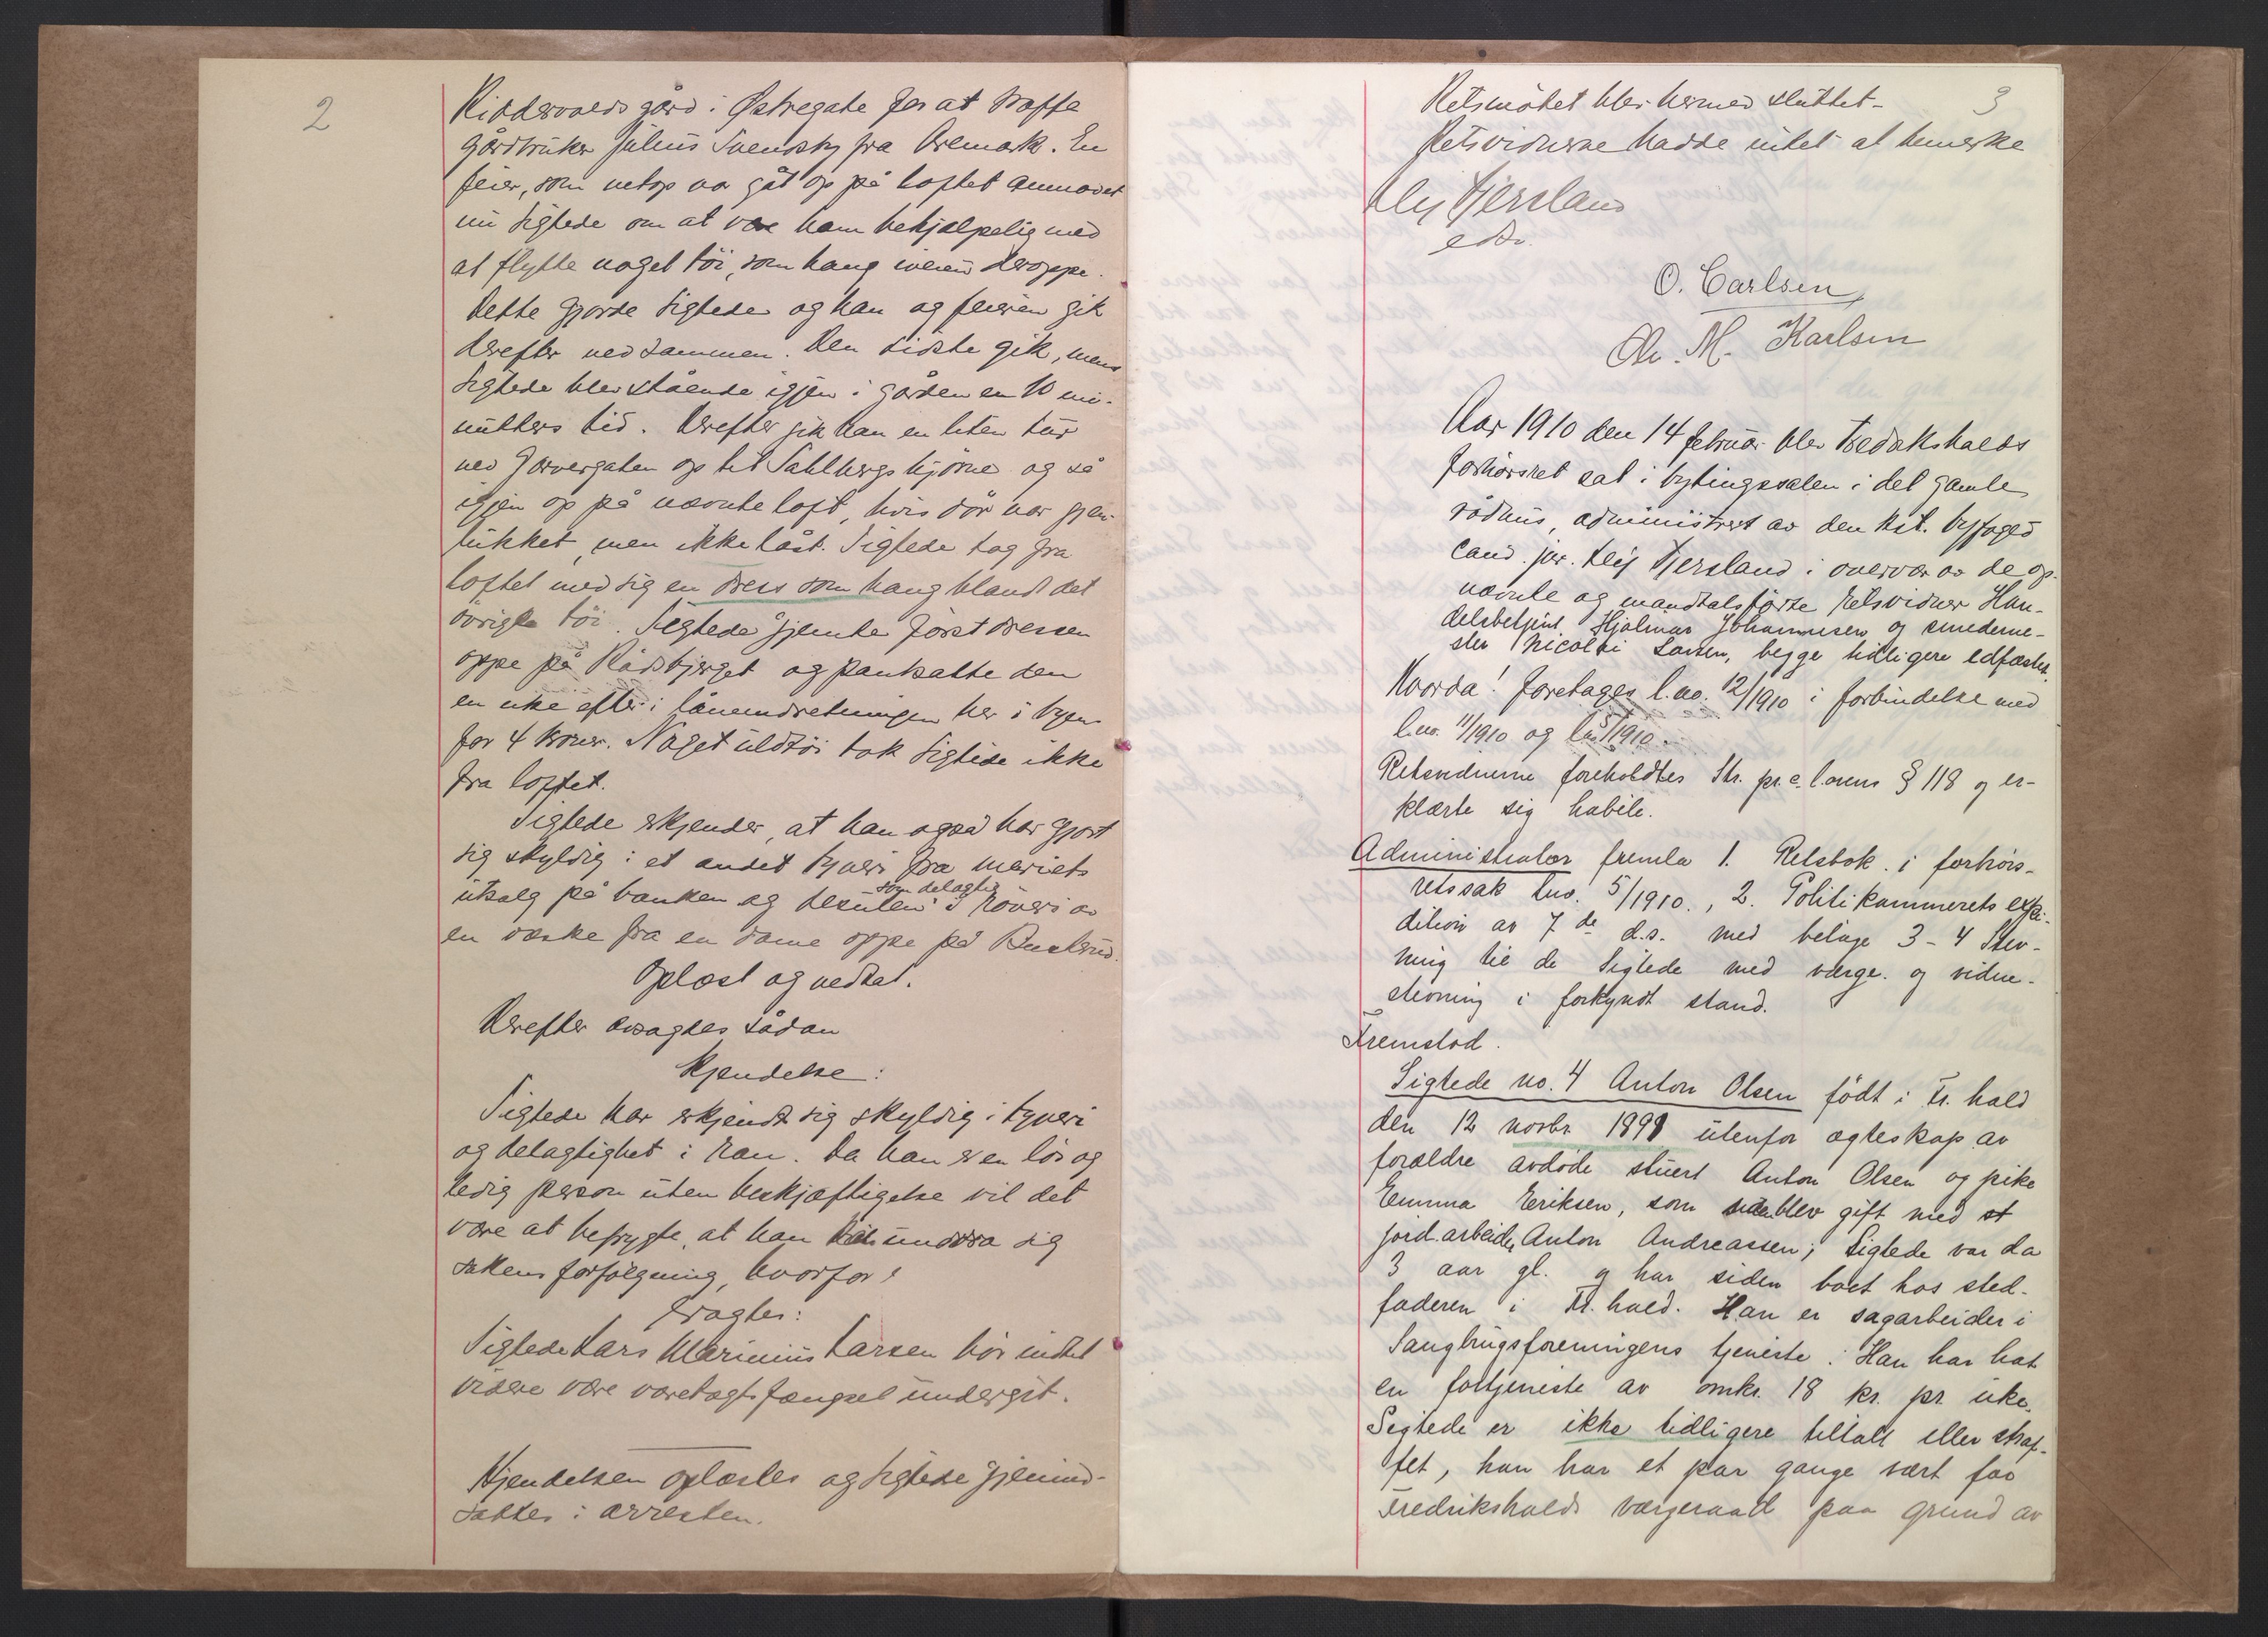 2
Kiddervolds gård i Østregate for at træffe
gårdbruker Julius Svendsby fra Aremark. En
feier, som netop var gåt op på loftet anmodet
nu sigtede om at være ham behjælpelig med
at flytte noget töi, som hang iveien deroppe.
Dette gjorde sigtede og han og feieren gik
derefter ned sammen. Den sidste gik, mens
sigtede blev stående igjen i gården en 10 mi-
nutters tid. Derefter gik han en liten tur
ned Garvergaten op til Sahlbergs hjörne og så
igjen op på nævnte loft, hvis dör var gjen-
lukket, men ikke låst. Sigtede tog fra
loftet med sig en dress som hang blandt det
övrige töi. Sigtede gjemte först dressen
oppe på Rådsbjerget og pantsatte den
en uke efter i låneindretningen her i byen
for 4 kroner. Noget uldtöi tok sigtede ikke
fra loftet.
Sigtede erkjender, at han også har gjort
sig skyldig i et andet tyveri fra meriets
utsalg på banken og desuten som delagtig i röveri av
en væske fra en dame oppe på Buskrud.
Oplæst og vedtat.
Derefter avsagdes sådan
Kjendelse:
Sigtede har erkjendt sig skyldig i tyveri
og delagtighet i ran. Da han er en lös og
ledig person uten beskjæftigelse vil det
være at befrygte, at han vil unddra sig
sakens forfölgning, hvorfor:
Eragtes:
Sigtede Lars Marinius Larsen bör indtil
videre være varetægtsfængsel undergit.
Kjendelsen oplæstes og sigtede gjenind-
sattes i arresten.
3
Retsmötet blev hermed sluttet-
Retsvidnerne hadde intet at bemerke
Alf Fjersland
cst.
O. Carlsen
Chr. M. Karlsen
Aar 1910 den 14 februar blev Fredrikshalds
forhörsret sat i bytingssalen i det gamle
rådhus, administrert av den kst. byfoged
cand. jur. Alf Fjersland i overvær av de op-
nævnte og mandtalsförte retsvidner Han-
delsbetjent Hjalmar Johannesen og smedeme-
ster Nicolai Larsen, begge tidligere edfæstet.
Hvorda! foretages l.no. 12/1910 i forbindelse med
l.no. 11/1910 og l.no 5/1910.
Retsvidnerne foreholdtes Str. pr.c. lovens § 118 og er-
klærte sig habile.
Administrator fremla 1. Retsbok i forhörs-
retssak Lno. 5/1910., 2. Politikammerets expe-
dition av 7de d.s. med bilage 3-4 Stev-
ning til de Sigtede med værge og vidne-
stevning i forkyndt stand.
Fremstod.
Sigtede no. 4 Anton Olsen födt i Fr. hald
den 12 novbr 1891 utenfor ægteskap av
forældre avdöde stuert Anton Olsen og pike
Emma Eriksen, som siden blev gift med
jord.arbeider Anton Andreassen; Sigtede var da
3 aar gl. og har siden boet hos sted-
faderen i Fr. hald. Han er sagarbeider i
Saugbrugsforeningens tjeneste. Han har hat
en fortjeneste av omkr. 18 kr. pr. uke.
Sigtede er ikke tidligere tiltalt eller straf-
fet, han har et par gange vært for
Fredrikshalds værgeraad paa grund av